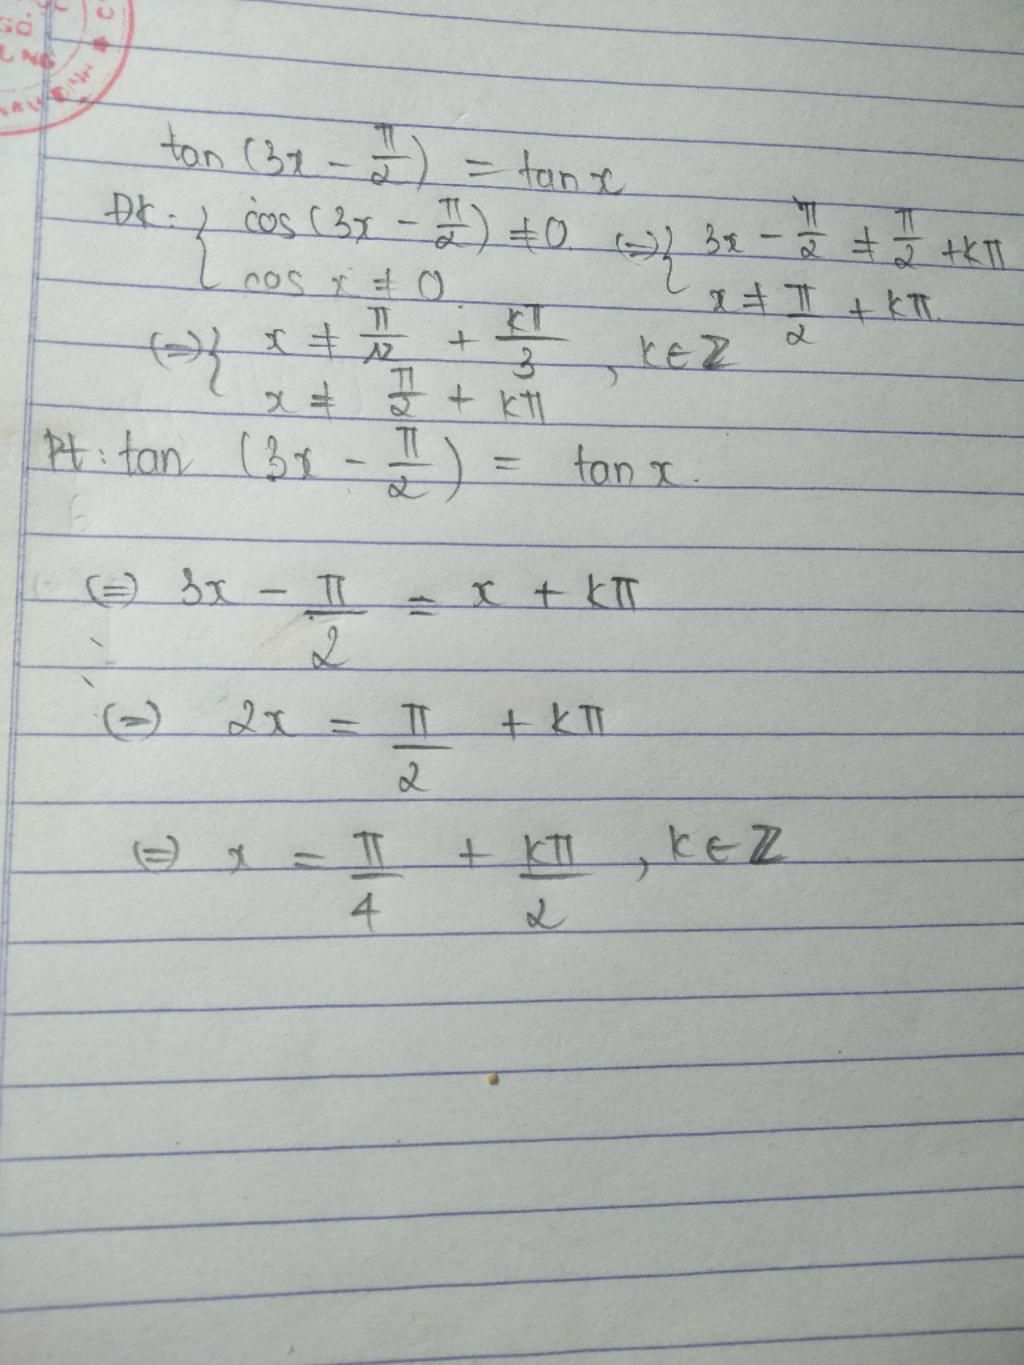 tan (3x - π/2) = tan x
ĐK: { cos (3x - π/2) ≠ 0 (=) { 3x - π/2 ≠ π/2 + kπ
cos x ≠ 0. x ≠ π/2 + kπ.
(=) { x ≠ π/12 + kπ/3 , k ∈ ℤ
x ≠ π/2 + kπ
Pt: tan (3x - π/2) = tan x.
(=) 3x - π/2 = x + kπ
(=) 2x = π/2 + kπ
(=) x = π/4 + kπ/2 , k ∈ ℤ